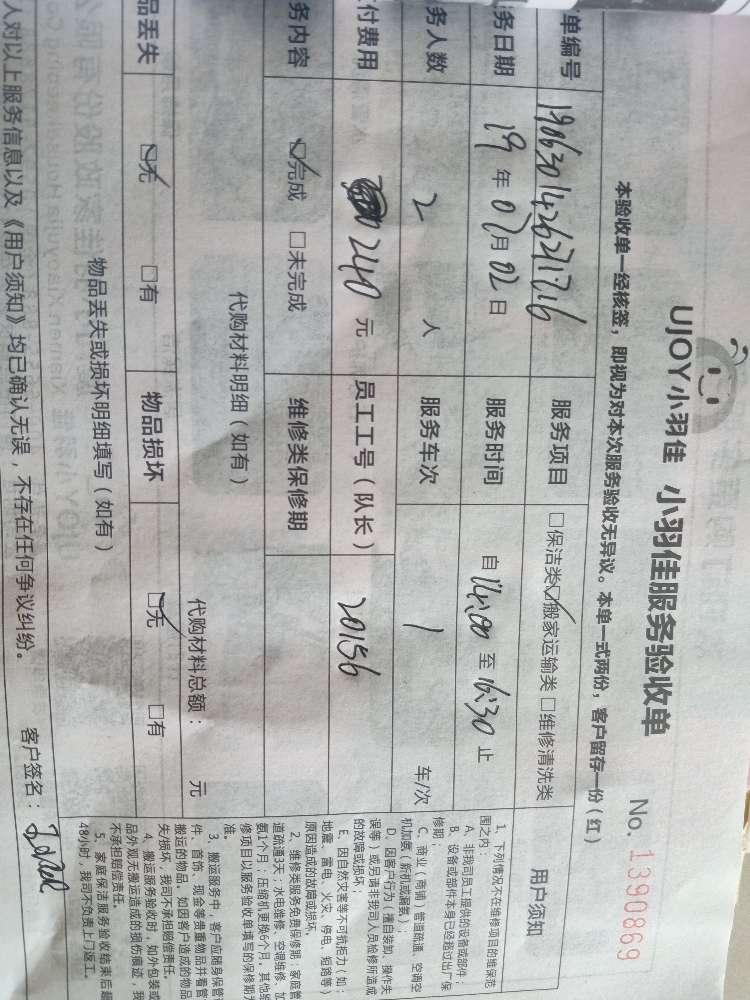 UJOY小羽佳 小羽佳服务验收单
No. 1390869
本验收单一经核签，即视为对本次服务验收无异议。本单一式两份，客户留存一份（红）
单编号 190630142627 服务项目 □保洁类 ☑搬家运输类 □维修清洗类
务日期 19 年 07 月 02 日 服务时间 自 14:00 至 16:30 止
务人数 2 人 服务车次 1 车/次
付费用 240 元 员工工号（队长） 20156
务内容 ☑完成 □未完成 维修类保修期
代购材料明细（如有） 代购材料总额： 元
品丢失 ☑无 □有 物品损坏 ☑无 □有
物品丢失或损坏明细填写（如有）
人对以上服务信息以及《用户须知》均已确认无误，不存在任何争议纠纷。 客户签名：
用户须知
1、下列情况不在维修项目的维保范
围之内：
A、非我司员工提供的设备或部件；
B、设备或部件本身已经超过出厂保
修期；
C、商业（商铺）管道疏通、空调空
机加氨（新机或漏氨）；
D、因客户行为（擅自装卸、操作失
误等）或另请非我司人员维修所造成
的故障或损坏；
E、因自然灾害等不可抗拒力（如：
地震、雷电、火灾、停电、短路等）
原因造成的故障或损坏
2、维修类服务免费保修期：家庭管
道疏通3天；水电维修、空调维修、加
氨1个月；压缩机更换6个月，其他维
修项目以服务验收单填写的保修期为
准。
3、搬运服务中，客户应随身保管
件、首饰、现金等贵重物品并看管
搬运的物品，如因客户造成的物品
失损坏，我司不承担赔偿责任。
4、搬运服务验收时，如外包装或
品外观无搬运造成的损伤痕迹，我
不承担赔偿责任。
5、家庭保洁服务验收结束后超
48小时，我司不负责上门返工。